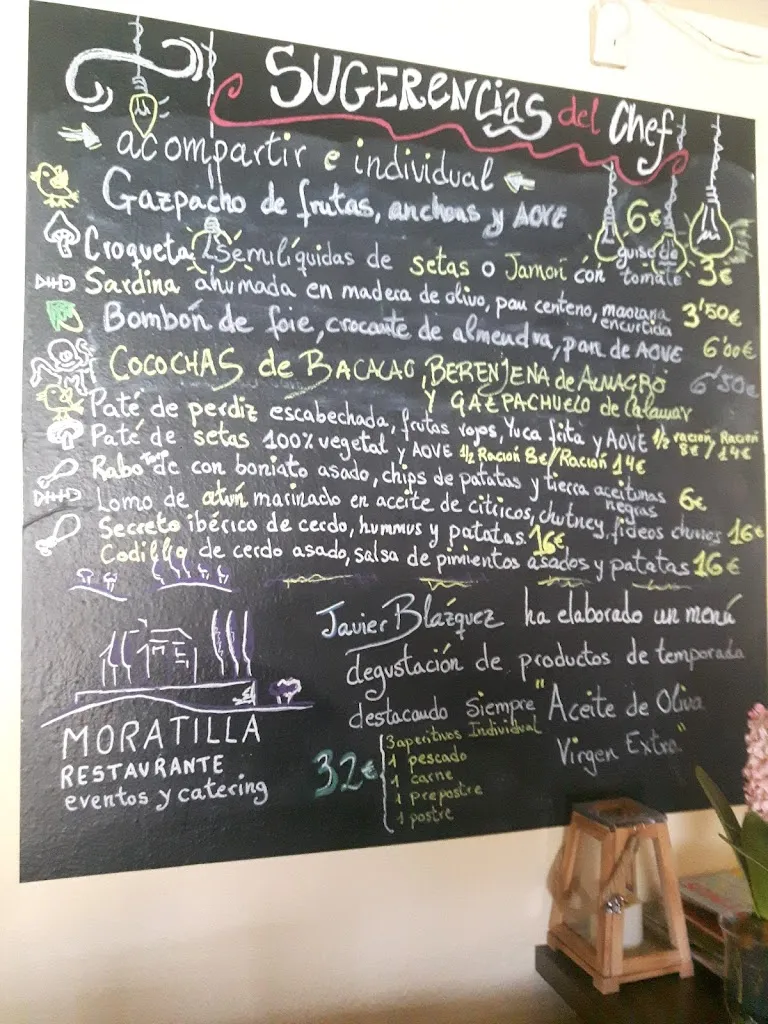 SUGERENCIAS del Chef
acompartir e individual
Gazpacho de frutas, anchoas y AOVE 6€
Croqueta Semilíquidas de setas o Jamón con guiso de tomate 3€
Sardina ahumada en madera de olivo, pan centeno, manzana encurtida 3'50€
Bombón de foie, crocante de almendra, pan de AOVE 6'00€
COCOCHAS de BACALAO, BERENJENA de ALMAGRO 6'50€
Y GAZPACHUELO de Calamar
Paté de perdiz escabechada, frutas rojos, Yuca frita y AOVE 1/2 ración, Ración
8€/14€
Paté de setas 100% vegetal y AOVE 1/2 Ración 8€/Ración 14€
Rabo Toro de con boniato asado, chips de patatas y tierra aceitunas negras 6€
Lomo de atún marinado en aceite de citricos, chutney, fideos chinos 16€
Secreto ibérico de cerdo, hummus y patatas. 16€
Codillo de cerdo asado, salsa de pimientos asados y patatas 16€
Javier Blázquez ha elaborado un menú
degustación de productos de temporada
destacando siempre "Aceite de Oliva
Virgen Extra."
32€
3 aperitivos Individual
1 pescado
1 carne
1 prepostre
1 postre
MORATILLA
RESTAURANTE
eventos y catering